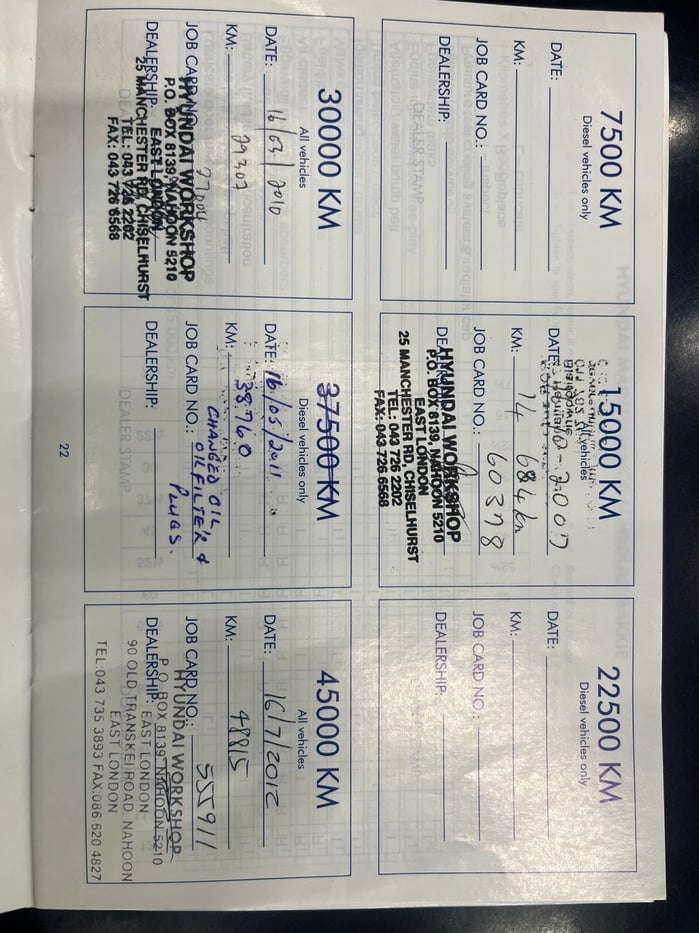 7500 KM
Diesel vehicles only
DATE:
KM:
JOB CARD NO.:
DEALERSHIP:
15000 KM
All vehicles
DATE: 2007
KM: 14 684km
JOB CARD NO.: 60378
DEALERSHIP:
HYUNDAI WORKSHOP
P.O. BOX 8139, NAHOON 5210
EAST LONDON
25 MANCHESTER RD CHISELHURST
TEL: 043 726 2202
FAX: 043 726 6568
22500 KM
Diesel vehicles only
DATE:
KM:
JOB CARD NO.:
DEALERSHIP:
30000 KM
All vehicles
DATE: 16/03/2010
KM: 29307
JOB CARD NO.:
DEALERSHIP:
HYUNDAI WORKSHOP
P.O. BOX 8139, NAHOON 5210
EAST LONDON
25 MANCHESTER RD CHISELHURST
TEL: 043 726 2202
FAX: 043 726 6568
37500 KM
Diesel vehicles only
DATE: 16/05/2011
KM: 38760
JOB CARD NO.: CHANGED OIL
OILFILTER &
PLUGS.
DEALERSHIP:
DEALER STAMP
45000 KM
All vehicles
DATE: 16/7/2012
KM: 48815
JOB CARD NO.: 555911
DEALERSHIP:
HYUNDAI WORKSHOP
P.O. BOX 8139, NAHOON 5210
EAST LONDON
90 OLD TRANSKEI ROAD, NAHOON
EAST LONDON
TEL:043 735 3893 FAX:086 620 4827
22